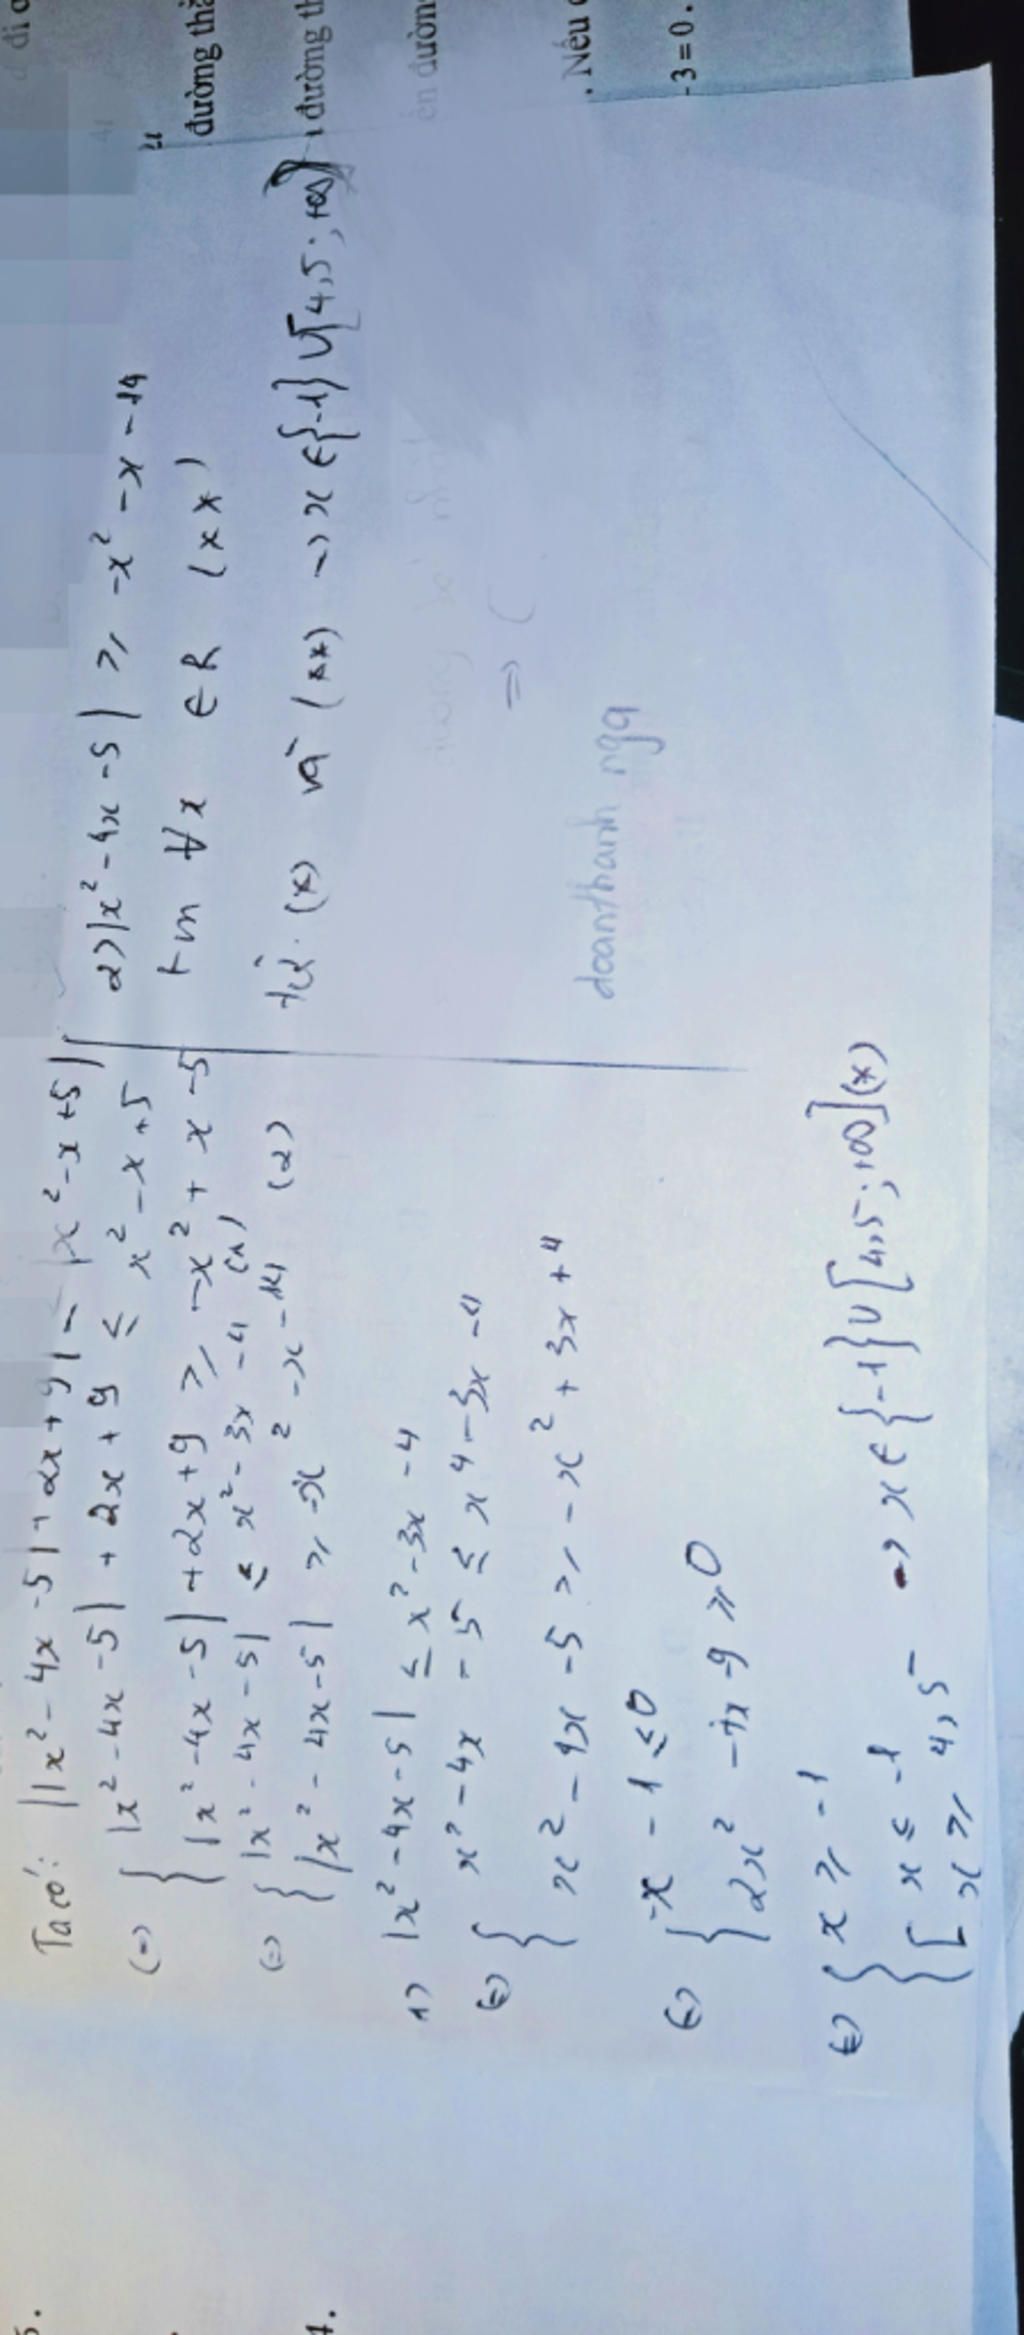 Ta có: ||x² - 4x - 5| + 2x + 9| - |x² - x + 5|
(=) { |x² - 4x - 5| + 2x + 9 ≤ x² - x + 5
|x² - 4x - 5| + 2x + 9 ≥ -x² + x - 5
(=) { |x² - 4x - 5| ≤ x² - 3x - 4 (1)
|x² - 4x - 5| ≥ -x² - x - 14 (2)
1) |x² - 4x - 5| ≤ x² - 3x - 4
(=) { x² - 4x - 5 ≤ x⁴ - 3x - 4
x² - 4x - 5 ≥ -x² + 3x + 4
(=) { -x - 1 ≤ 0
2x² - 7x - 9 ≥ 0
(=) { x ≥ -1
[ x ≤ -1
x ≥ 4,5
=> x ∈ {-1} ∪ [4,5 ; +∞](*)
2) |x² - 4x - 5| ≥ -x² - x - 14
tm ∀x ∈ R (**)
từ (*) và (**) => x ∈ {-1} ∪ [4,5 ; +∞)
doanthanh nga
đường
đường
đường
. Nếu
- 3 = 0 .